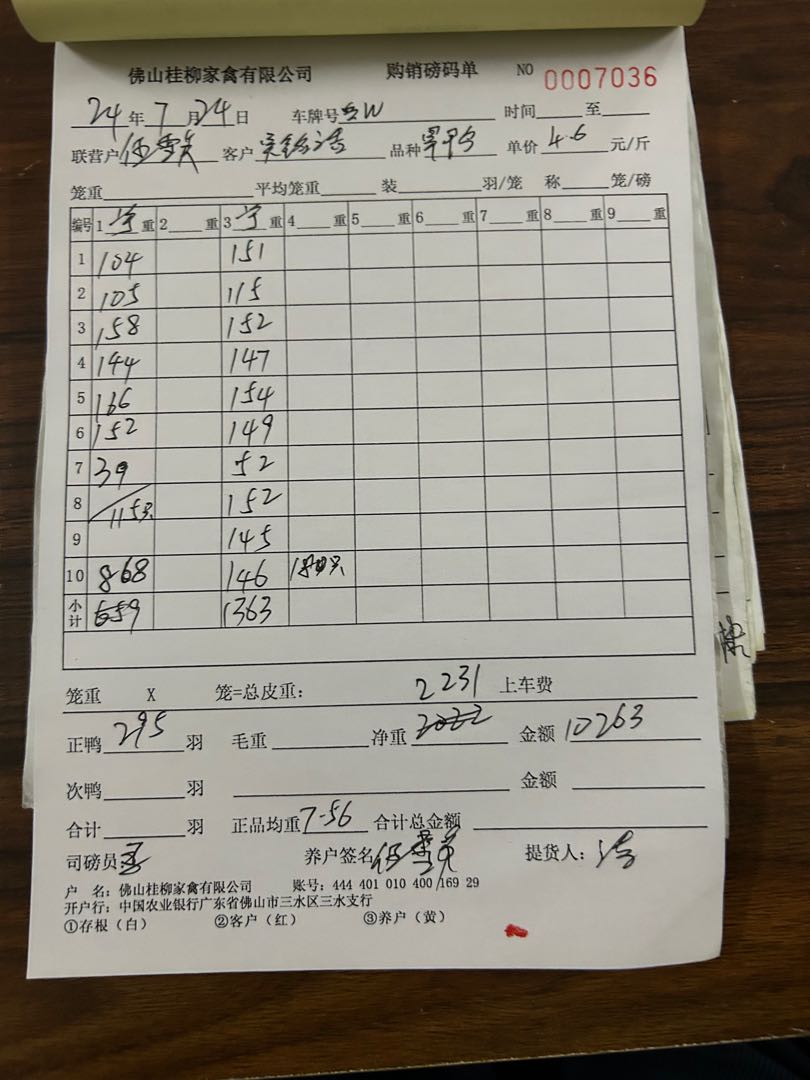 佛山桂柳家禽有限公司 购销磅码单 NO 0007036
24年7月24日 车牌号 时间 至
联营户 客户 品种 单价4.6元/斤
笼重 平均笼重 装 羽/笼 称 笼/磅
编号 1 重 2 重 3 重 4 重 5 重 6 重 7 重 8 重 9 重
1 104 151
2 105 115
3 158 152
4 144 147
5 166 154
6 152 149
7 39 52
8 115只 152
9 145
10 868 146
小计 659 1363
笼重 X 笼=总皮重: 2231 上车费
正鸭295羽 毛重 净重2022 金额10263
次鸭 羽 金额
合计 羽 正品均重7.56 合计总金额
司磅员 养户签名 提货人:
户 名:佛山桂柳家禽有限公司 账号:444 401 010 400 169 29
开户行:中国农业银行广东省佛山市三水区三水支行
①存根(白) ②客户(红) ③养户(黄)